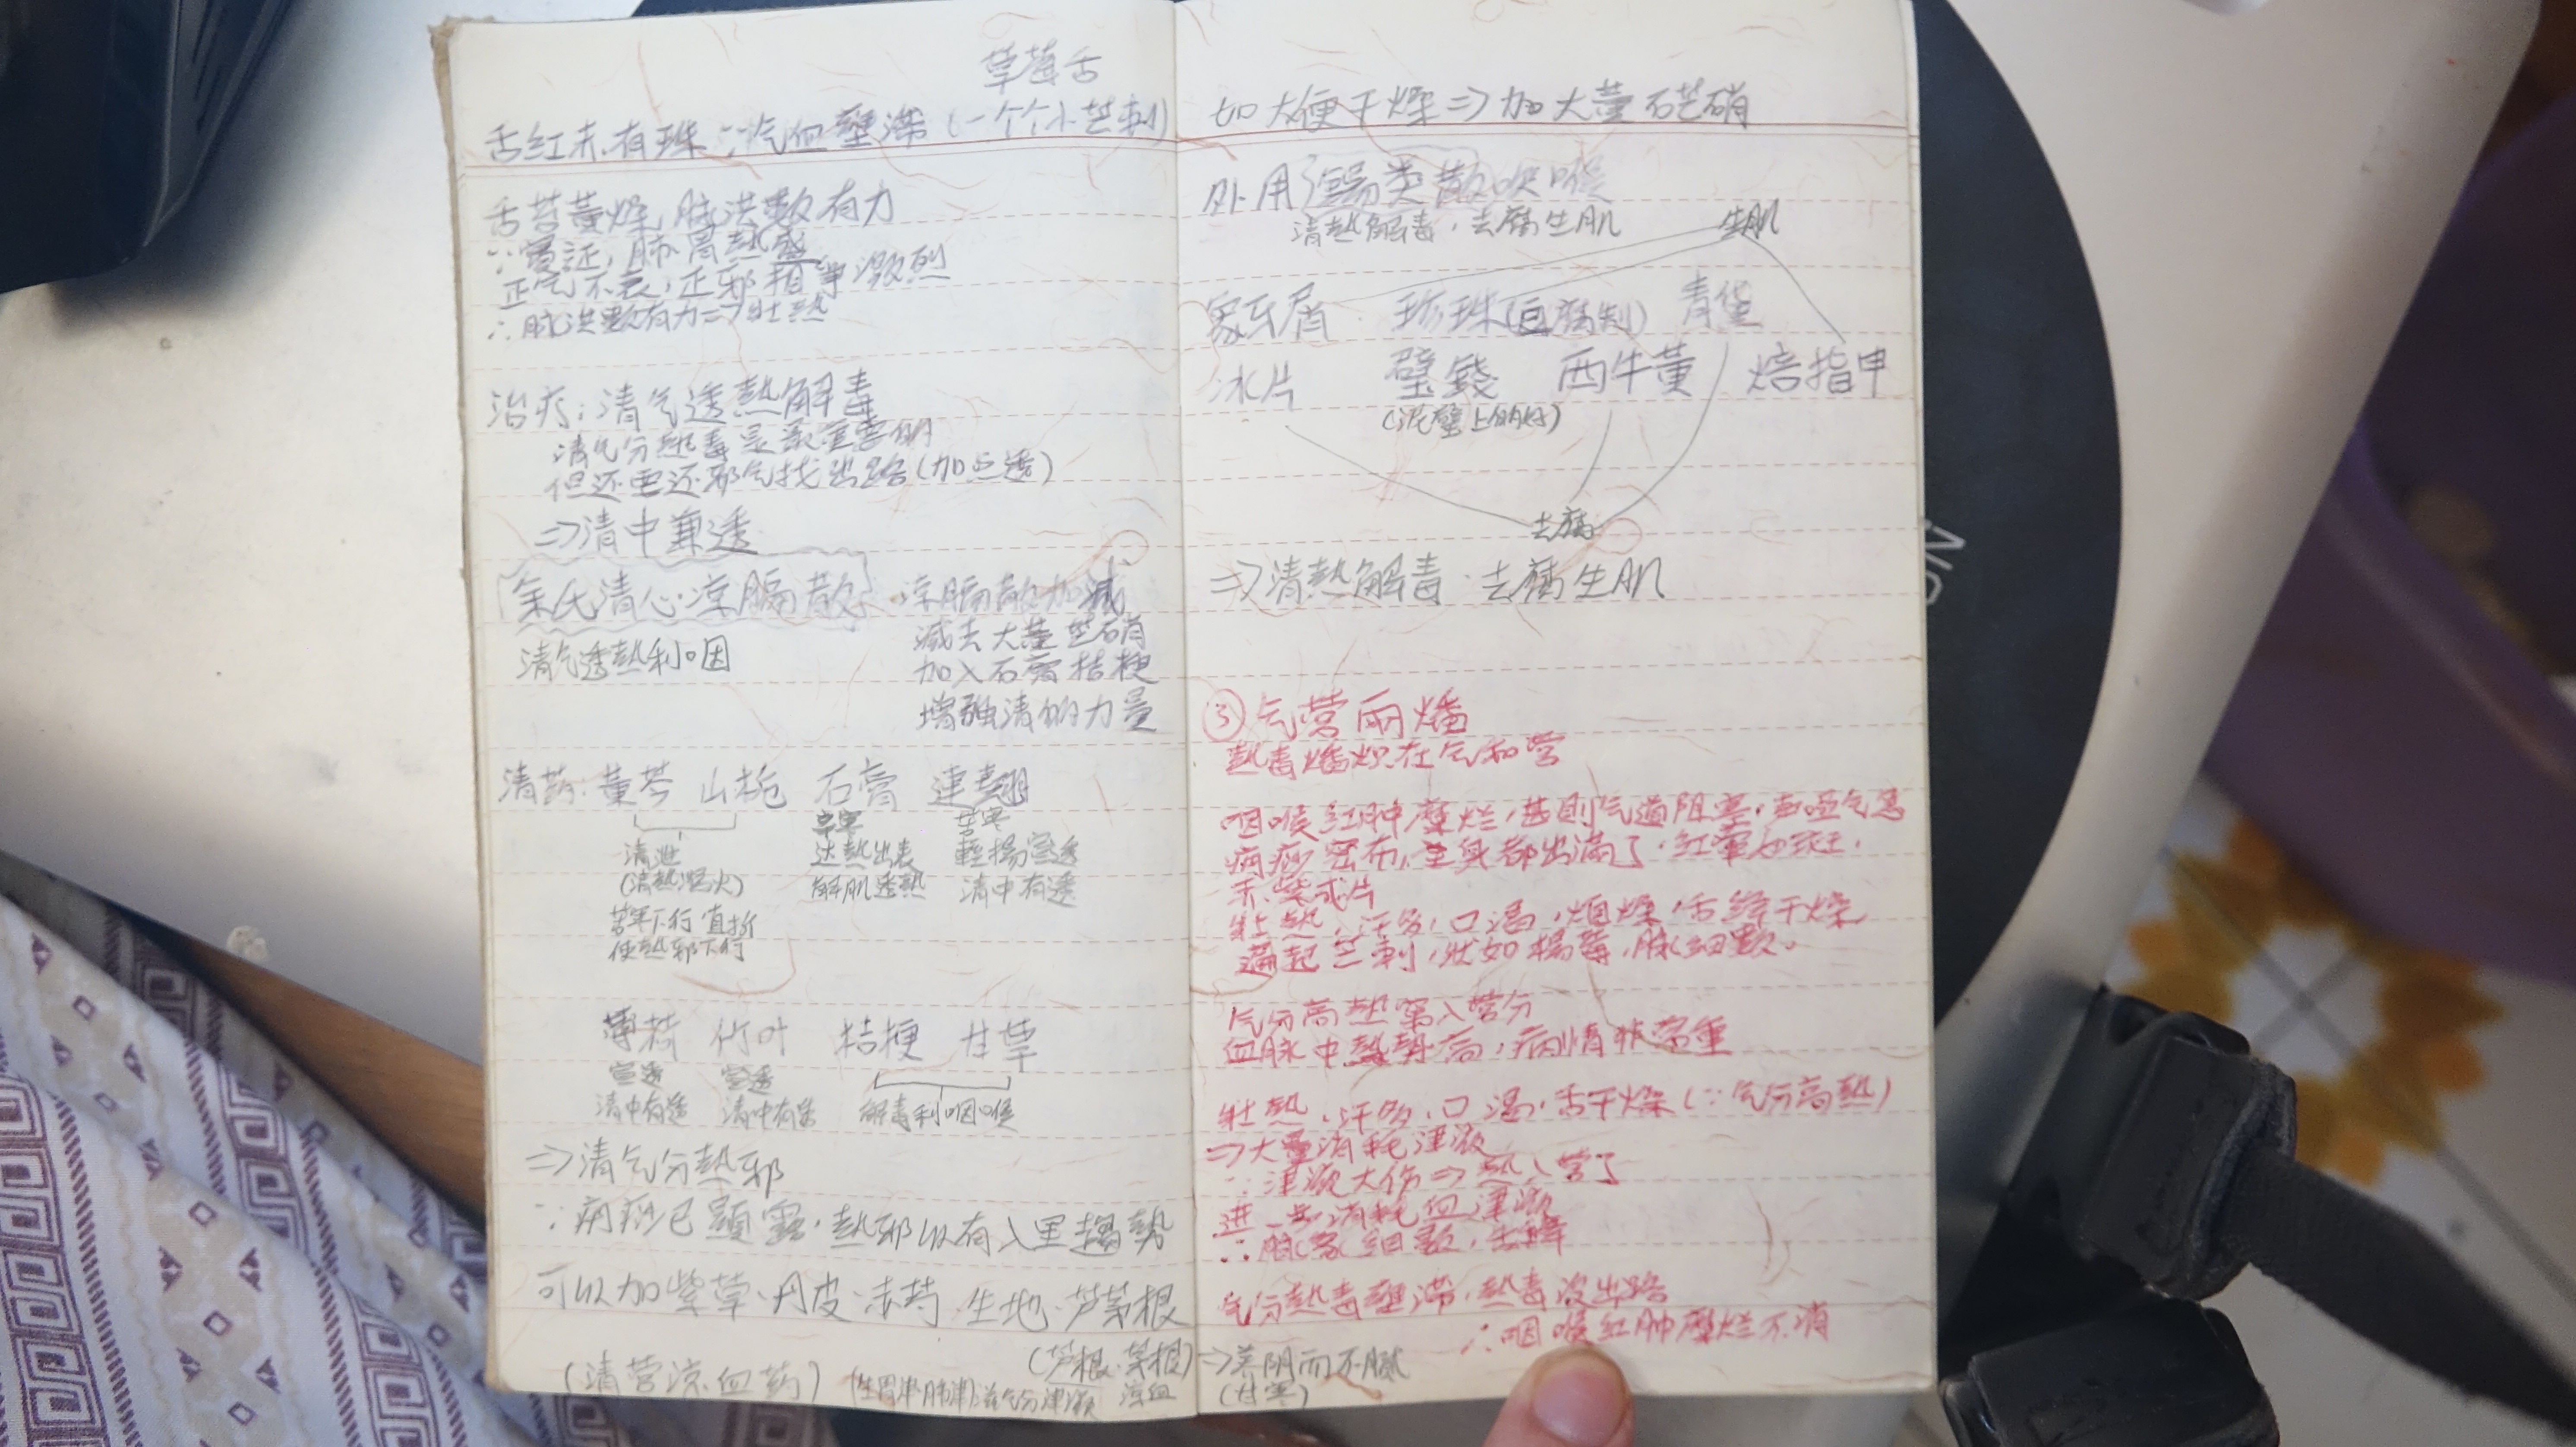 草莓舌
舌红赤有珠∵气血壅滞(一个个小芒刺)
舌苔黄燥,脉洪数有力
∵实証,肺胃热盛
正气不衰,正邪相争激烈
∴脉洪数有力⇒壮熱
治疗:清气透熱解毒
清气分熱毒是最重要的
但还要还邪气找出路(加点透)
⇒清中兼透
余氏清心凉膈散 凉膈散加减
清气透熱利咽
减去大黄芒硝
加入石膏桔梗
增强清的力量
清药:黄芩 山栀 石膏 連翘
清泄
(清熱泻火)
苦寒下行直折
使熱邪下行
辛寒
达熱出表
解肌透熱
苦寒
輕揚宣透
清中有透
薄荷 竹叶 桔梗 甘草
宣透
清中有透
宣透
清中有透
解毒利咽喉
⇒清气分熱邪
∵病痧已顯露,熱邪以有入里趨勢
可以加紫草·丹皮·赤芍·生地·芦茅根
(芦根·茅根)⇒养阴而不腻
(清营凉血药) (生胃津·肺津) 气分津液 凉血
(甘寒)
如大便干燥⇒加大黄 芒硝
外用锡类散吹喉
清熱解毒,去腐生肌
生肌
象牙屑 珍珠(豆腐制) 青黛
冰片 壁錢 西牛黄 焙指甲
(泥壁上的好)
去腐
⇒清熱解毒·去腐生肌
③气营両燔
熱毒燔炽在气和营
咽喉红肿糜烂,甚則气道阻塞,声哑气急
病痧密布,全身都出满了,红晕如斑,
赤紫成片
壮熱,汗多,口渴,烦燥,舌绛干燥
遍起芒刺,状如楊莓,脉细数。
气分高熱窜入营分
血脉中熱勢高,病情非常重
壮熱,汗多,口渴,舌干燥(∵气分高熱)
⇒大量消耗津液
∵津液大伤⇒熱入营了
进一步消耗血津液
∴脉象细数,舌绛
气分熱毒壅滞,熱毒没出路
∴咽喉红肿糜烂不消